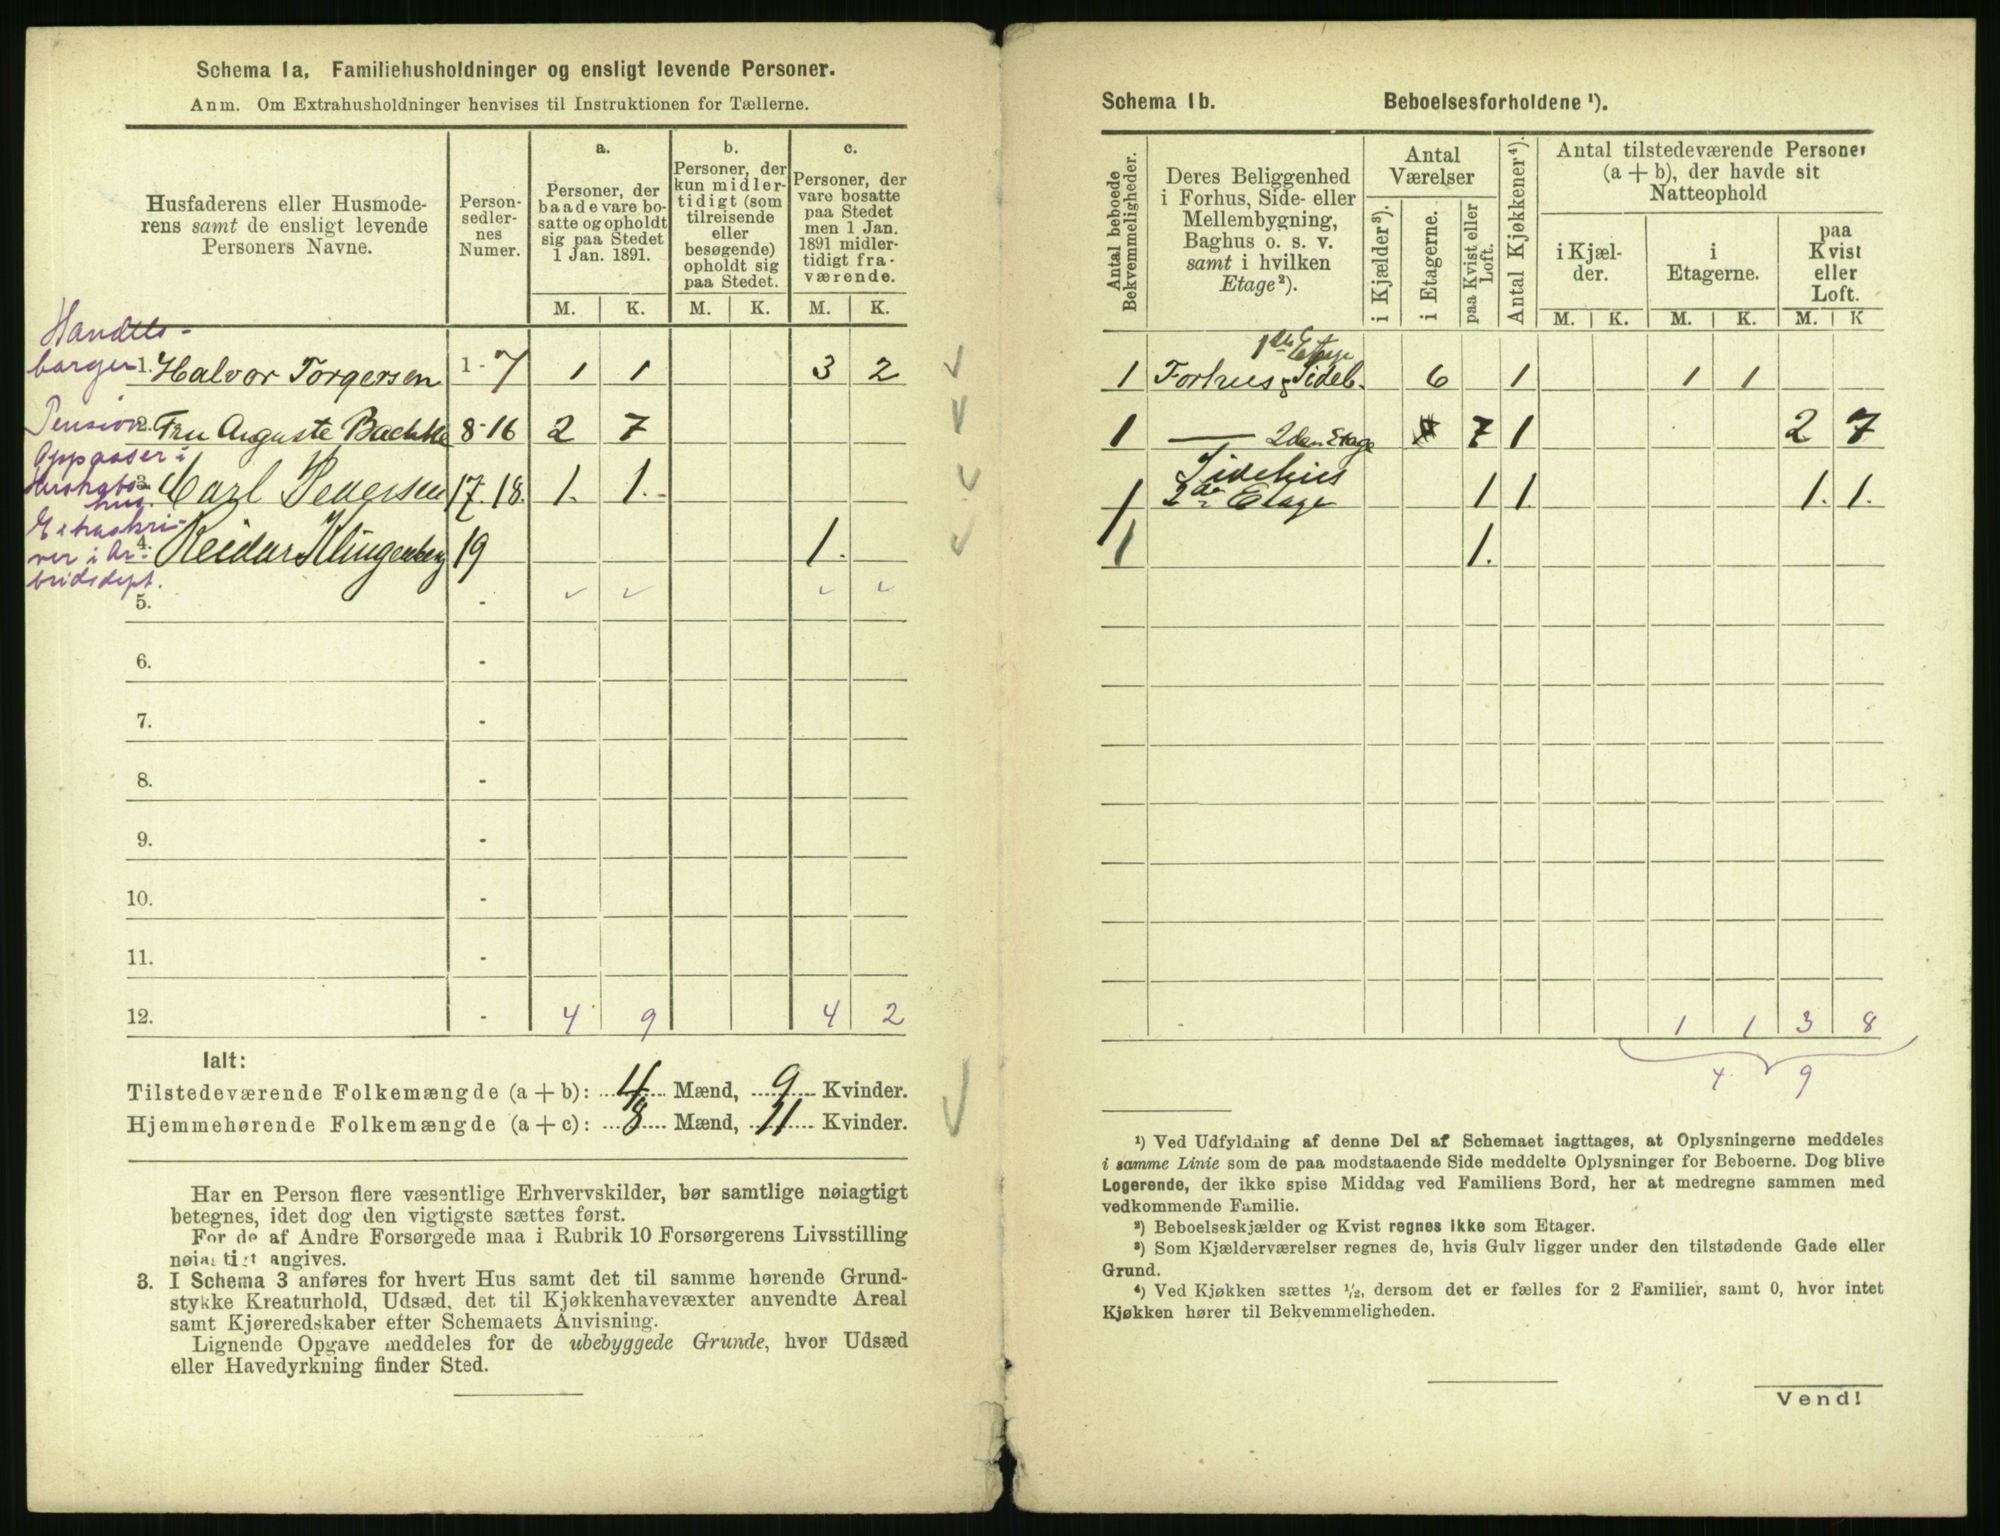 Schema 1a, Familiehusholdninger og ensligt levende Personer.
Anm. Om Extrahusholdninger henvises til Instruktionen for Tællerne.
Husfaderens eller Husmode-
rens samt de ensligt levende
Personers Navne.
Person-
sedler-
nes
Numer.
a.
Personer, der
baade vare bo-
satte og opholdt
sig paa Stedet
1 Jan. 1891.
b.
Personer, der
kun midler-
tidigt (som
tilreisende
eller
besøgende)
opholdt sig
paa Stedet.
c.
Personer, der
vare bosatte
paa Stedet
men 1 Jan.
1891 midler-
tidigt fra-
værende.
M. K. M. K. M. K.
Handels-
borger 1. Halvor Torgersen 1 - 7 1 1 3 2
Pension 2. Fru Auguste Backke 8-16 2 7
Oppasser i
3. Carl Pedersen 17-18. 1. 1.
hus.
Extraskri-
ver i Ar- 4. Reidar Klingenberg 19 1.
bridsdept.
5. -
6. -
7. -
8. -
9. -
10. -
11. -
12. - 4 9 4 2
Ialt:
Tilstedeværende Folkemængde (a + b): 4 Mænd, 9 Kvinder.
Hjemmehørende Folkemængde (a + c): 8 Mænd, 11 Kvinder.
Har en Person flere væsentlige Erhvervskilder, bør samtlige nøiagtigt
betegnes, idet dog den vigtigste sættes først.
For de af Andre Forsørgede maa i Rubrik 10 Forsørgerens Livsstilling
nøiagtigt angives.
3. I Schema 3 anføres for hvert Hus samt det til samme hørende Grund-
stykke Kreaturhold, Udsæd, det til Kjøkkenhavevæxter anvendte Areal
samt Kjøreredskaber efter Schemaets Anvisning.
Lignende Opgave meddeles for de ubebyggede Grunde, hvor Udsæd
eller Havedyrkning finder Sted.
Schema 1b. Beboelsesforholdene ¹).
Antal beboede
Bekvemmeligheder.
Deres Beliggenhed
i Forhus, Side- eller
Mellembygning,
Baghus o. s. v.
samt i hvilken
Etage²).
Antal
Værelser
i Kjælder³).
i Etagerne.
paa Kvist eller
Loft.
Antal Kjøkkener⁴).
Antal tilstedeværende Personer
(a + b), der havde sit
Natteophold
i Kjæl-
der.
i
Etagerne.
paa
Kvist
eller
Loft.
M. K. M. K. M. K
1ste Etage
1 Forhus & Sideb. 6 1 1 1
1 — 2den Etage 7 1 2 7
Sidehus
1 2den Etage 1 1. 1. 1.
1 1.
1 1 3 8
4 9
¹) Ved Udfyldning af denne Del af Schemaet iagttages, at Oplysningerne meddeles
i samme Linie som de paa modstaaende Side meddelte Oplysninger for Beboerne. Dog blive
Logerende, der ikke spise Middag ved Familiens Bord, her at medregne sammen med
vedkommende Familie.
²) Beboelseskjælder og Kvist regnes ikke som Etager.
³) Som Kjælderværelser regnes de, hvis Gulv ligger under den tilstødende Gade eller
Grund.
⁴) Ved Kjøkken sættes ½, dersom det er fælles for 2 Familier, samt 0, hvor intet
Kjøkken hører til Bekvemmeligheden.
Vend!